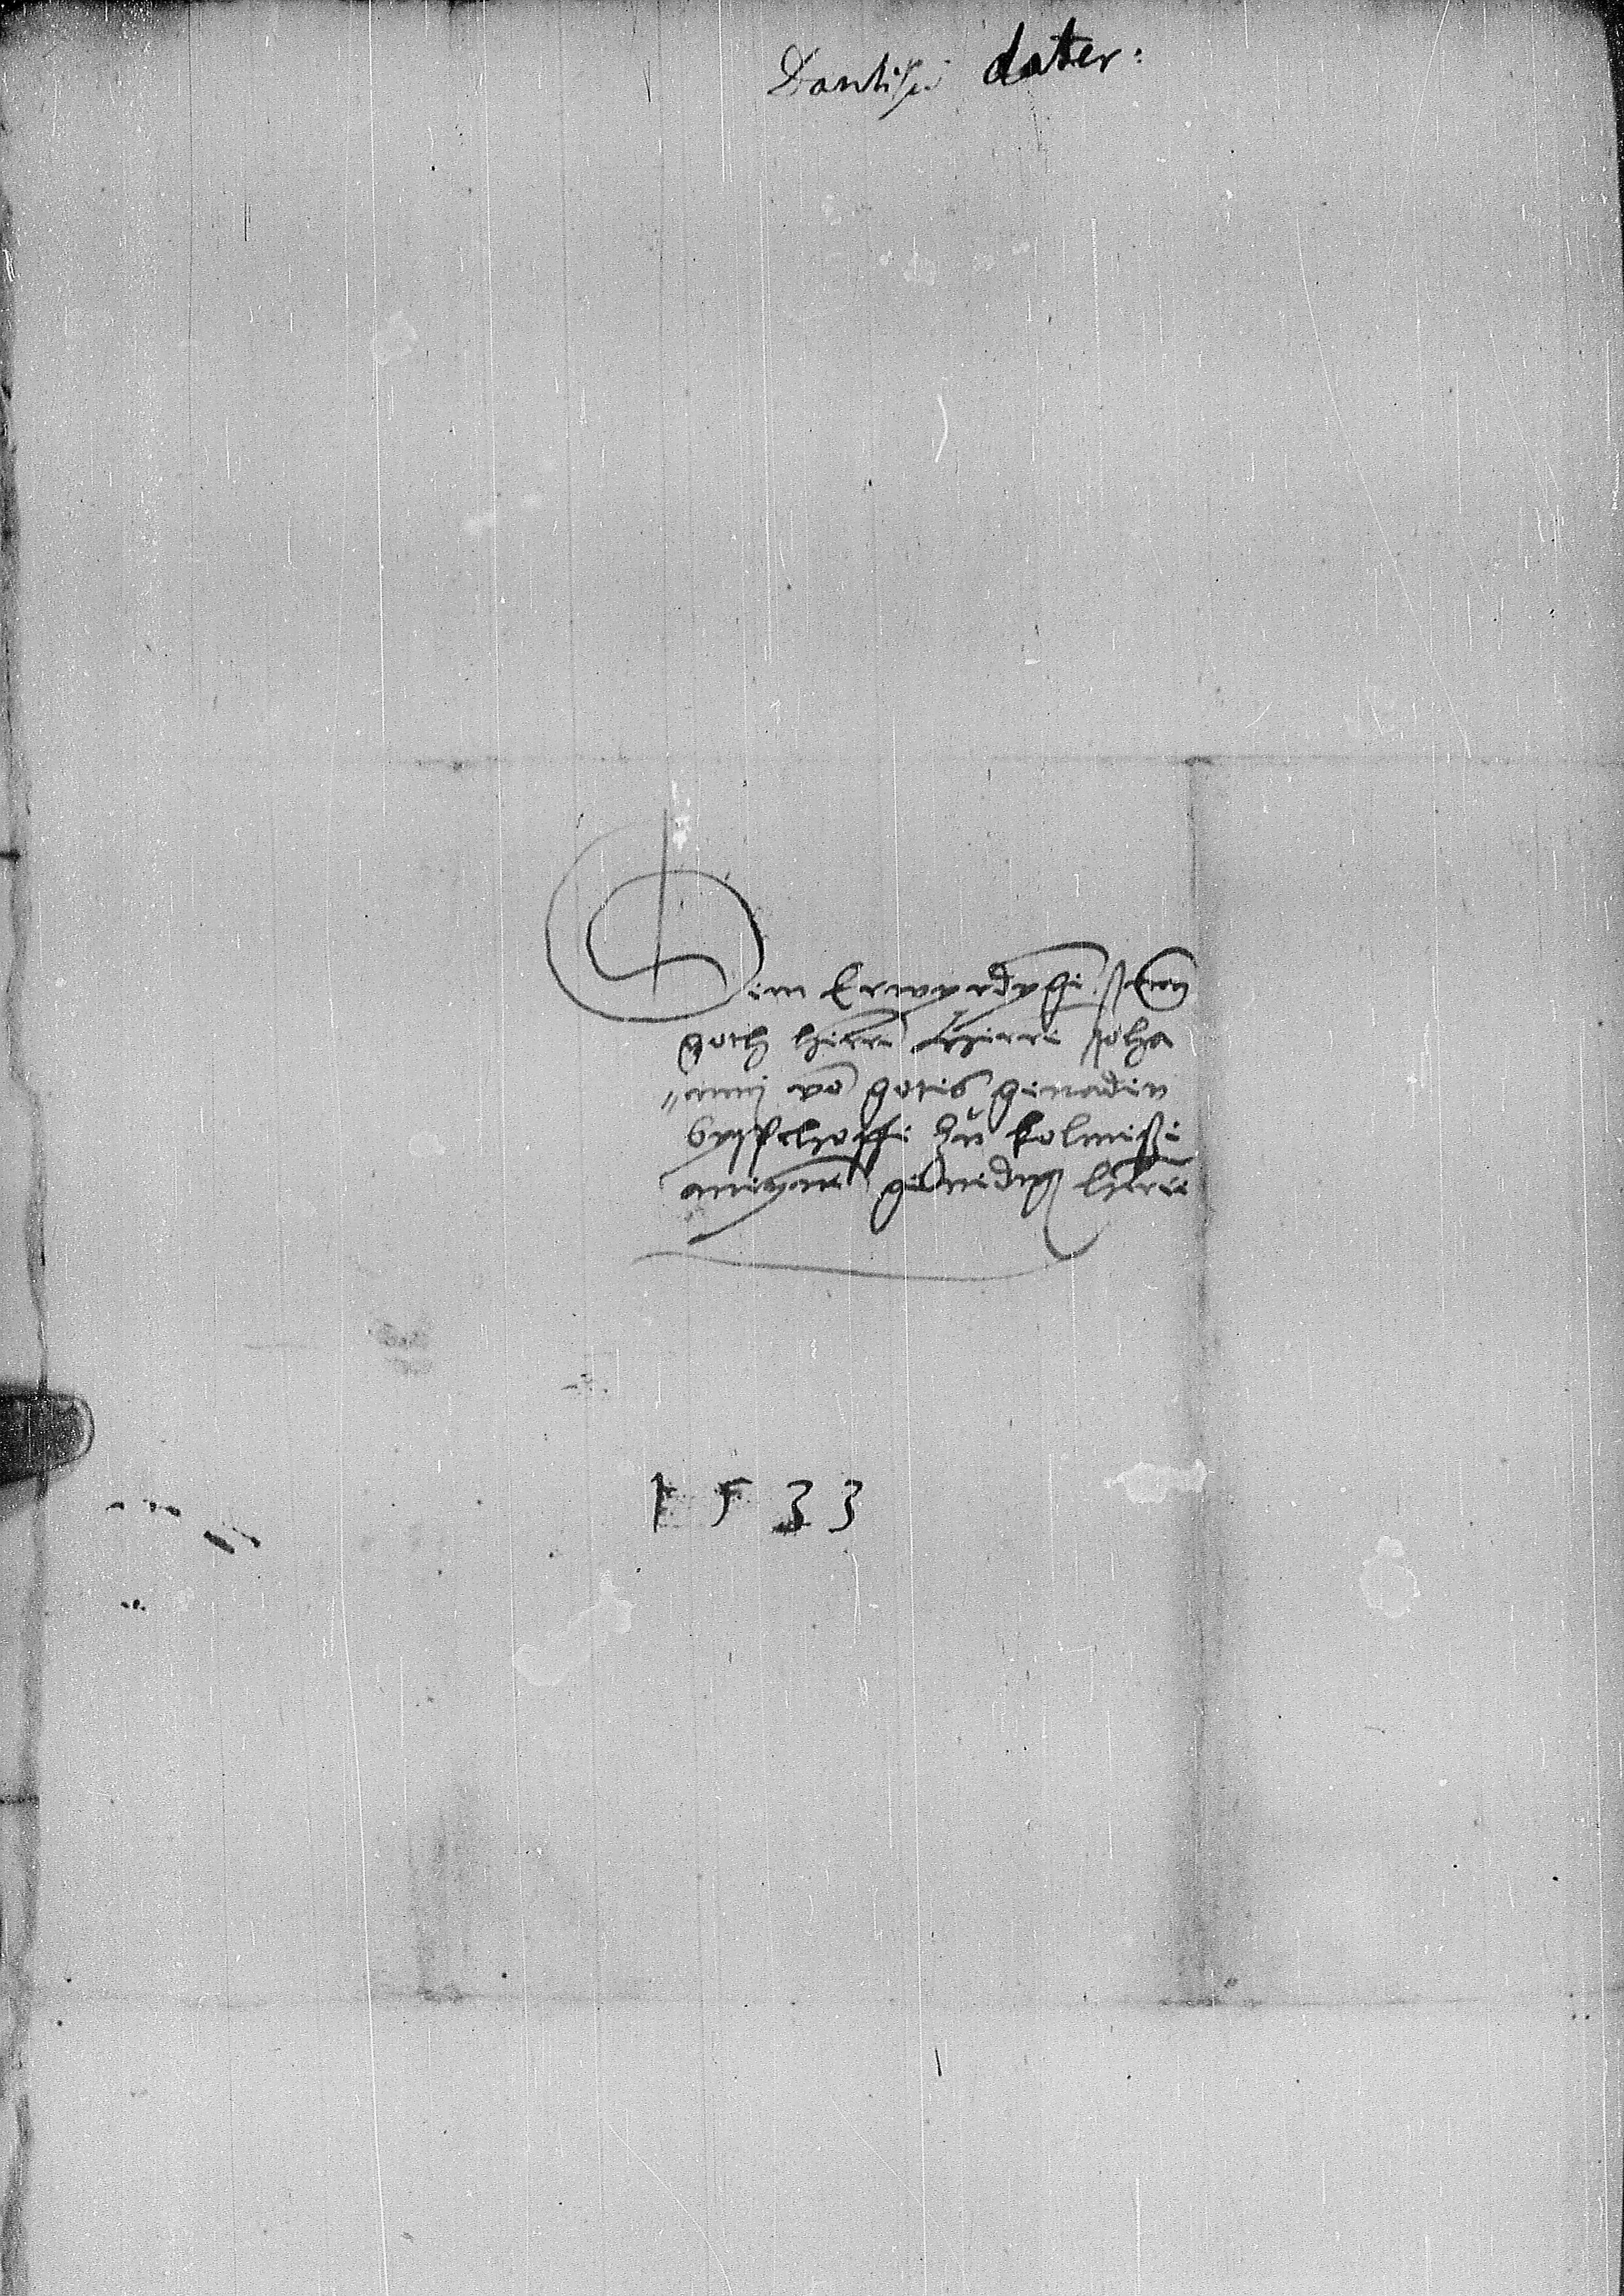 Dantisci dater:
Dem Erwyrdygen in
goth hern hern Joha
„nni vo gotis genaden
bysschoffe zu kolmeße
meynem genedig hern
1533